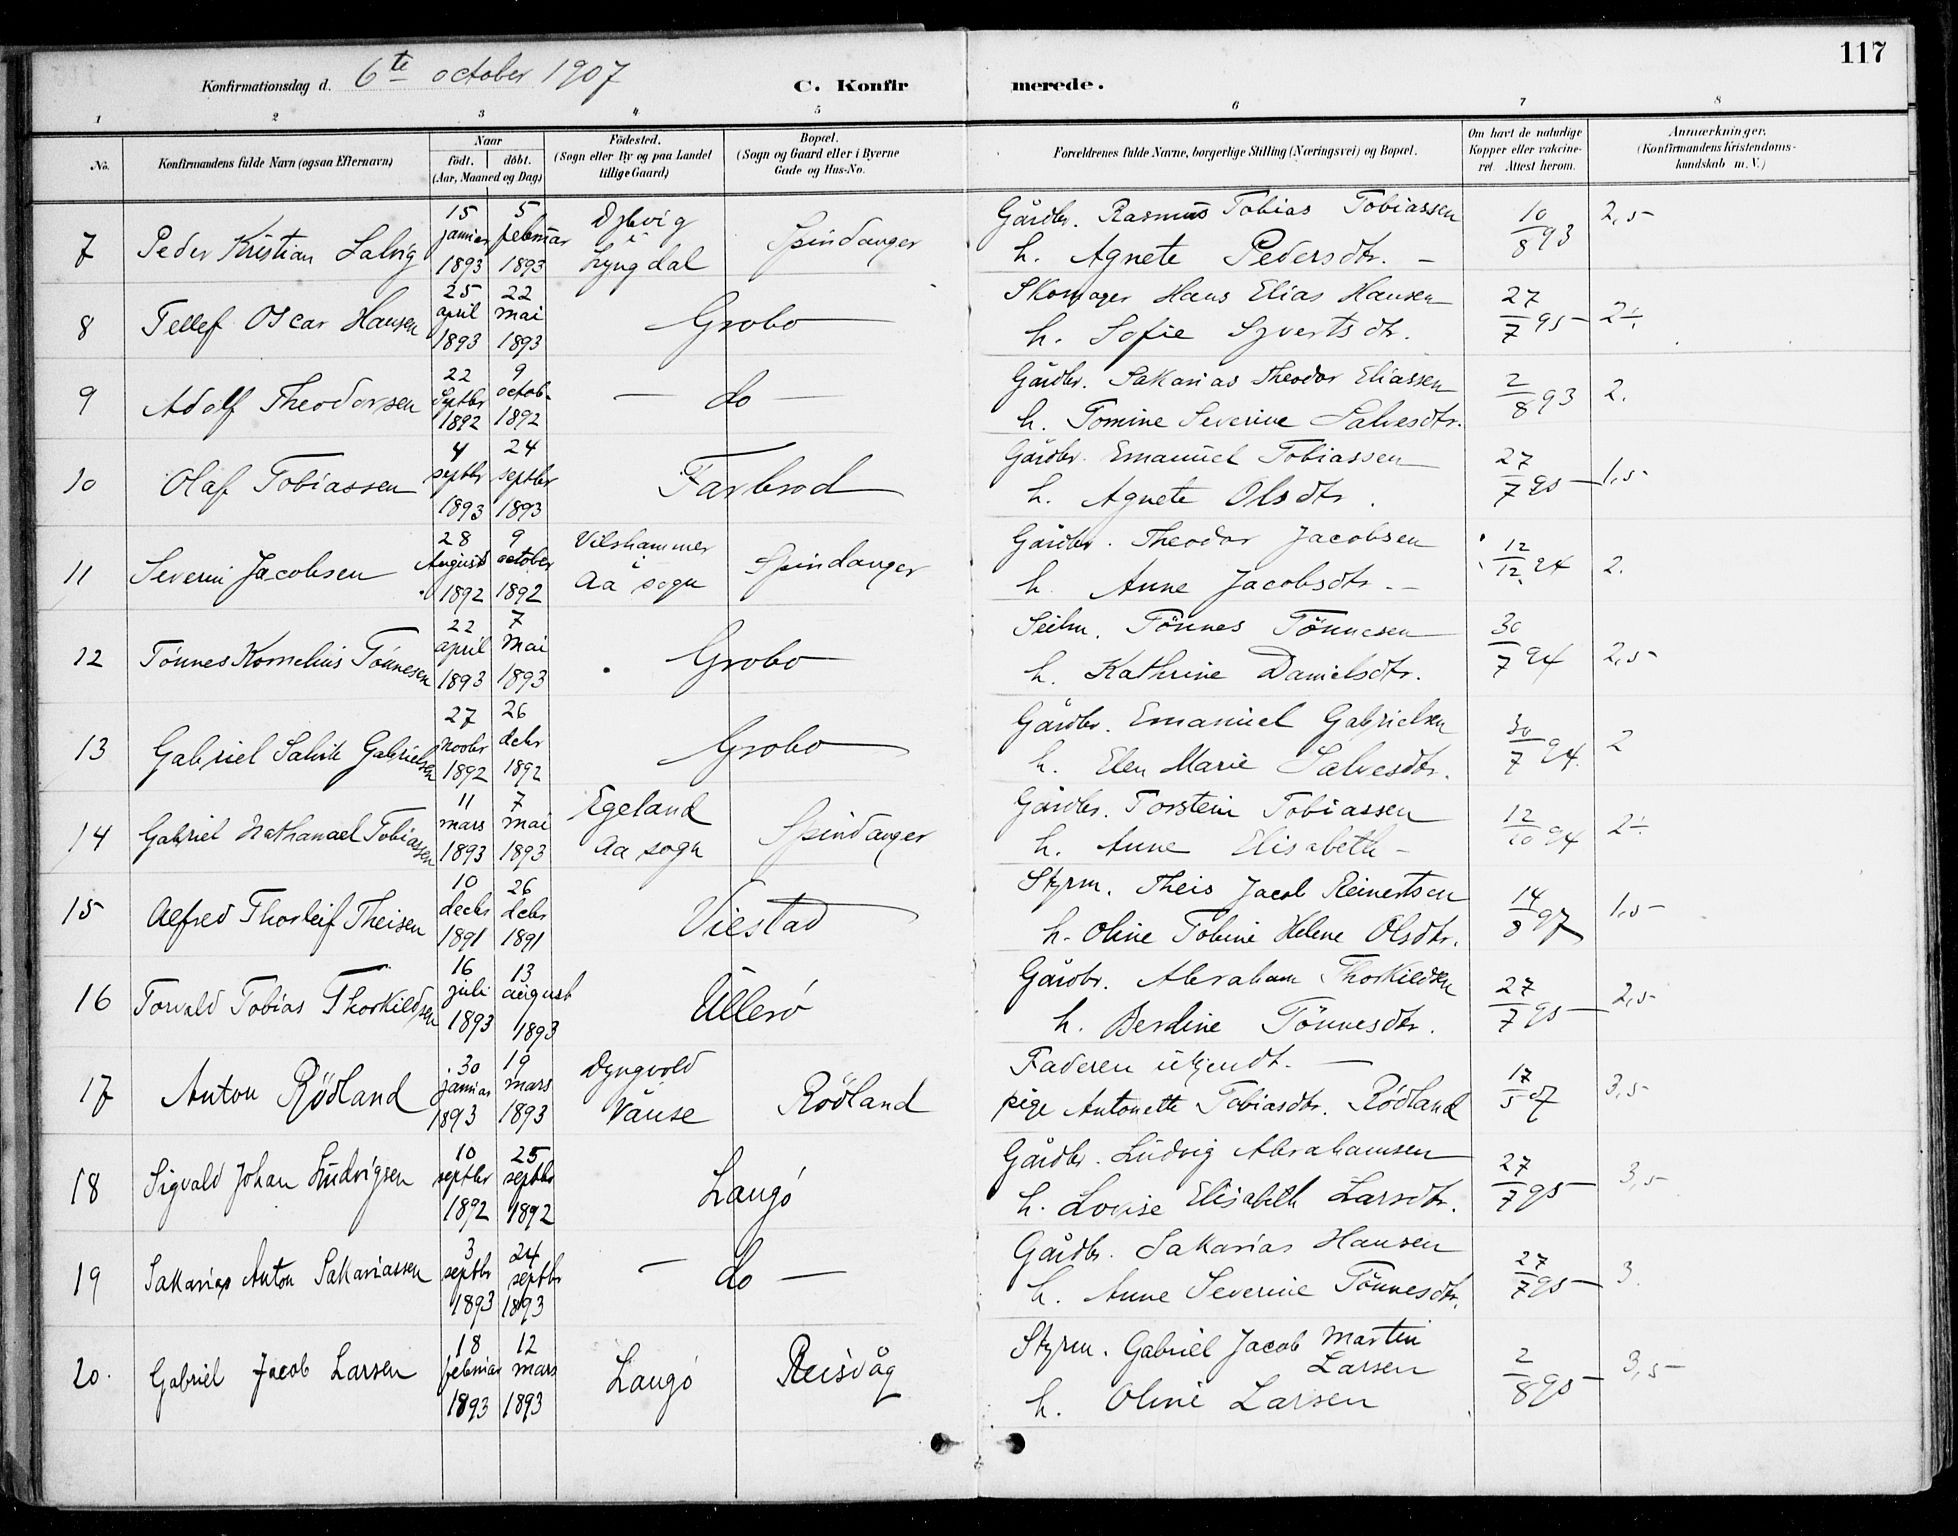 117
Konfirmationsdag d. 6te october 1907
C. Konfirmerede.
1 2 3 4 5 6 7 8
No. Konfirmandens fulde Navn (ogsaa Efternavn) Naar født. døbt. (Aar, Maaned og Dag) Födested. (Sogn eller By og paa Landet tillige Gaard) Bopæl. (Sogn og Gaard eller i Byerne Gade og Hus-No. Forældrenes fulde Navne, borgerlige Stilling (Næringsvei) og Bopæl. Om havt de naturlige Kopper eller vakcineret. Attest herom. Anmærkninger. (Konfirmandens Kristendomskundskab m. V.)
7 Peder Kristian Salvig 15 januar 1893 5 februar 1893 i Lyngdal Spindanger Gårdbr. Rasmus Tobias Tobiassen
h. Agnete Pedersdtr. – 10/8 93 2,5
8 Tellef Oscar Hansen 25 april 1893 22 mai 1893 Grobo Skomager Hans Elias Hansen
h. Sofie Syvertsdtr. 27/7 95 2÷
9 Adolf Theodorsen 22 septbr 1892 9 octob. 1892 — do — Gårdbr. Sakarias Theodor Eliassen
h. Tomine Severine Salvesdtr. 2/8 93 2.
10 Olaf Tobiassen 4 septbr 1893 24 septbr 1893 Farbrod Gårdbr. Emanuel Tobiassen
h. Agnete Olsdtr. 27/7 95 1,5
11 Severin Jacobsen 28 August 1892 9 october 1892 Vilshammer i Aa sogn Spindanger Gårdbr. Theodor Jacobsen
h. Anne Jacobsdtr. – 12/12 94 2.
12 Tönnes Kornelius Tönnesen 22 april 1893 7 Mai 1893 Grobo Seilm. Tönnes Tönnesen
h. Kathrine Danielsdtr. 30/7 94 2,5
13 Gabriel Salvik Gabrielsen 27 novbr 1892 26 debr 1892 Grobo Gårdbr. Emanuel Gabrielsen
h. Elen Marie Salvesdtr. 30/7 94. 2
14 Gabriel Nathanael Tobiassen 11 mars 1893 7 mai 1893 Egeland Aa sogn Spindanger Gårdbr. Torstein Tobiassen
h. Anne Elisabeth – 12/10 94 2÷
15 Alfred Thorleif Theisen 10 decbr 1891 26 debr 1891 Viestad Styrm. Theis Jacob Reinertsen
h. Oline Tobine Helene Olsdtr. 14/8 97 1,5
16 Torvald Tobias Thorkildsen 16 juli 1893 13 august 1893 Ullerö Gårdbr. Abraham Thorkildsen
h. Berdine Tönnesdtr. 27/7 95 2,5
17 Anton Rödland 30 januar 1893 19 mars 1893 Dyngvold Vanse Rödland Faderen ukjendt. —
pige Antonette Tobiasdtr. Rödland 17/5 07 3,5
18 Sigvald Johan Ludvigsen 10 septbr 1892 25 septbr 1892 Langö Gårdbr. Ludvig Abrahamsen
h. Lovise Elisabeth Larsdtr. 27/7 95 3,5
19 Sakarias Anton Sakariassen 3 septbr 1893 24 septbr 1893 — do — Gårdbr. Sakarias Hansen
h. Anne Severine Tönnesdtr. 27/7 95 3.
20. Gabriel Jacob Larsen 18 februar 1893 12 mars 1893 Langö Reisvåg Styrm. Gabriel Jacob Martin
Larsen
h. Oline Larsen 2/8 95 3,5